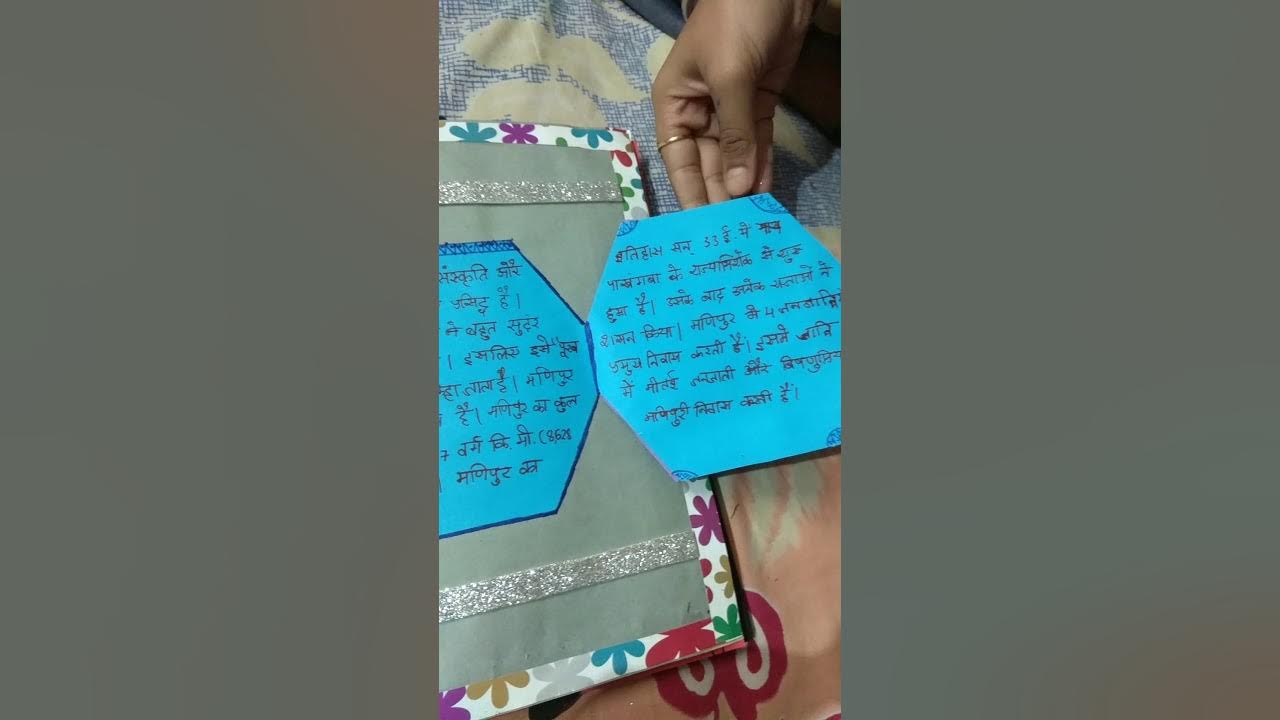 संस्कृति और
प्रसिद्ध हैं।
ने बहुत सुंदर
। इसलिए इसे "फूल
कहा जाता है। मणिपुर
है। मणिपुर का कुल
7 वर्ग कि.मी. (8,628
। मणिपुर का
इतिहास सन् 33 ई. में
पाखंगबा के राज्याभिषेक से शुरू
हुआ है। उसके बाद अनेक राजाओं ने
शासन किया। मणिपुर में 4 जनजाति
प्रमुख निवास करती हैं। इसमें जाति
में मीतई जनजाती और विष्णुप्रिय
मणिपुरी निवास करती हैं।